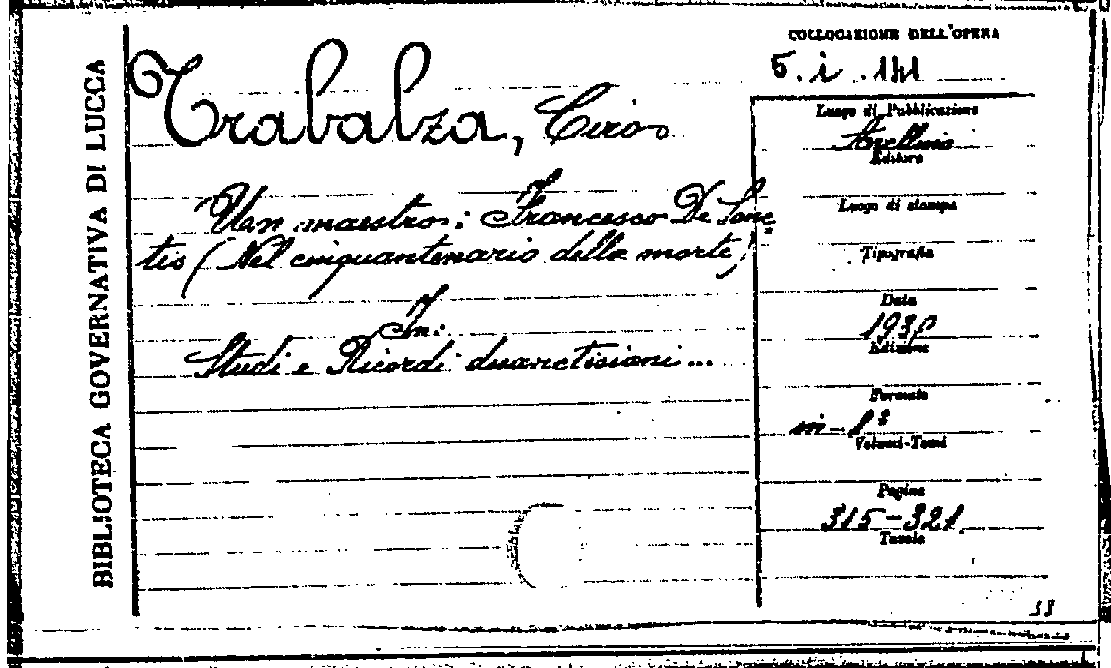 BIBLIOTECA GOVERNATIVA DI LUCCA
COLLOCAZIONE DELL'OPERA
5. i. 141
Trabalza, Ciro
Un maestro: Francesco De Sanc
tis (Nel cinquantenario della morte)
In:
Studi e Ricordi desanctisiani...
Luogo di Pubblicazione
Avellino
Editore
Luogo di stampa
Tipografia
Data
Edizione
Formato
in-8°
Volumi-Tomi
Pagine
315-321
Tavole